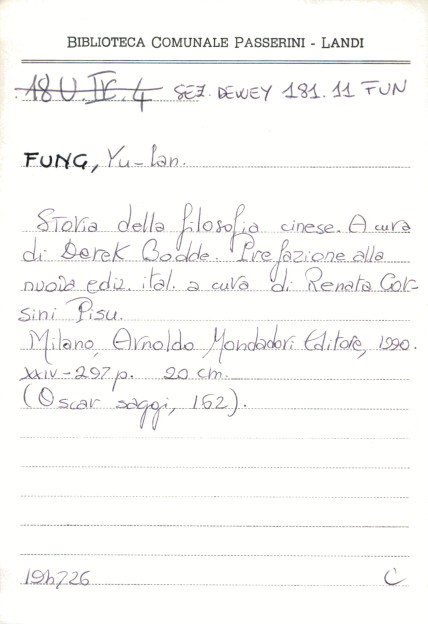 BIBLIOTECA COMUNALE PASSERINI - LANDI
18 U. IV. 4 SEZ. DEWEY 181.11 FUN
FUNG, Yu-lan.
Storia della filosofia cinese. A cura
di Derek Bodde. Prefazione alla
nuova ediz. ital. a cura di Renata Cor-
sini Pisu.
Milano, Arnoldo Mondadori Editore, 1990.
XXIV-297 p. 20 cm.
(Oscar saggi, 162).
194726 C